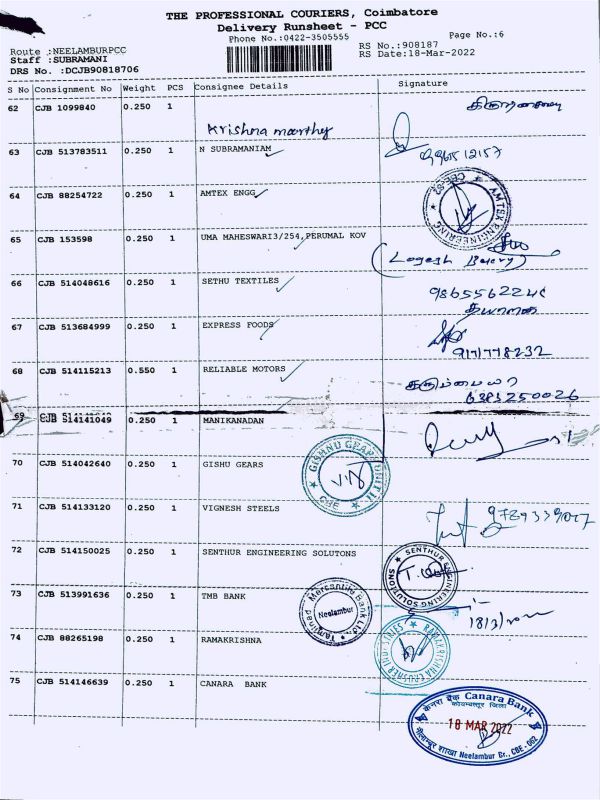 THE PROFESSIONAL COURIERS, Coimbatore
Delivery Runsheet - PCC
Phone No.:0422-3505555
Page No.:6
Route :NEELAMBURPCC
RS No.:908187
Staff :SUBRAMANI
RS Date:18-Mar-2022
DRS No. :DCJB90818706
S No Consignment No Weight PCS Consignee Details Signature
62 CJB 1099840 0.250 1
Krishna moorthy
63 CJB 513783511 0.250 1 N SUBRAMANIAM
64 CJB 88254722 0.250 1 AMTEX ENGG
AMTEX ENGINEERING
65 CJB 153598 0.250 1 UMA MAHESWARI3/254,PERUMAL KOV
(Logesh Bakery)
66 CJB 514048616 0.250 1 SETHU TEXTILES
67 CJB 513684999 0.250 1 EXPRESS FOODS
68 CJB 514115213 0.550 1 RELIABLE MOTORS
6383250026
69 CJB 514141049 0.250 1 MANIKANADAN
70 CJB 514042640 0.250 1 GISHU GEARS
GISHNU GEAR UNIT II
CBE
71 CJB 514133120 0.250 1 VIGNESH STEELS
72 CJB 514150025 0.250 1 SENTHUR ENGINEERING SOLUTONS
SENTHUR ENGINEERING SOLUTIONS
73 CJB 513991636 0.250 1 TMB BANK
Tamilnad Mercantile Bank Ltd
Neelambur
18/3/2022
74 CJB 88265198 0.250 1 RAMAKRISHNA
RAMAKRISHNA CRUSHER INDUSTRIES
75 CJB 514146639 0.250 1 CANARA BANK
केनरा बैंक Canara Bank
कोयम्बत्तूर जिला
18 MAR 2022
नीलाम्बूर शाखा Neelambur Br., CBE - 062